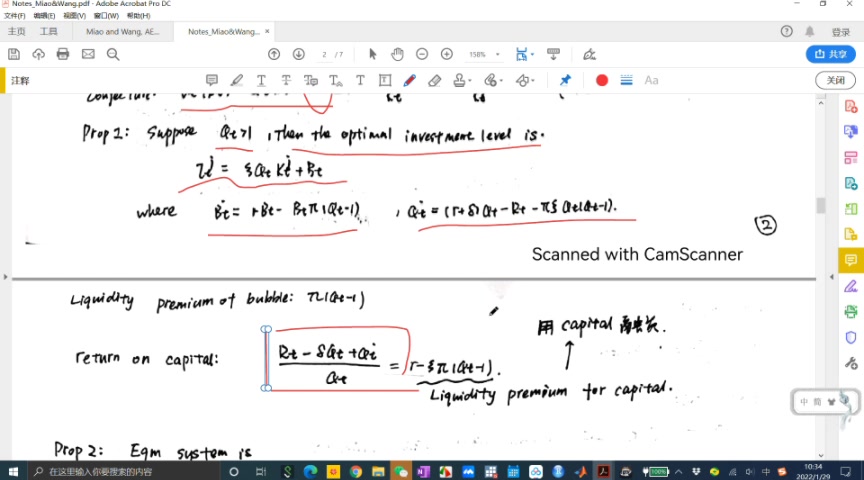 Notes_Miao&Wang.pdf - Adobe Acrobat Pro DC
文件(F) 编辑(E) 视图(V) 窗口(W) 帮助(H)
主页 工具 Miao and Wang, AE... Notes_Miao&Wang.... × 登录
2 / 7 158% 共享
注释 Aa 关闭
Prop 1: Suppose Qt>1, Then the optimal investment level is.
It^j = ξQt Kt^j + Bt
where Ḃt = rBt - Btπ(Qt-1), Q̇t = (r+δ)Qt - Rt - πξQt(Qt-1).
②
Scanned with CamScanner
Liquidity premium of bubble: π(Qt-1)
用 capital 融资.
return on capital: (Rt - δQt + Q̇t) / Qt = r - ξπ(Qt-1).
Liquidity premium for capital.
中 简
Prop 2: Eqm system is
在这里输入你要搜索的内容 100% 中 10:34
2022/1/29